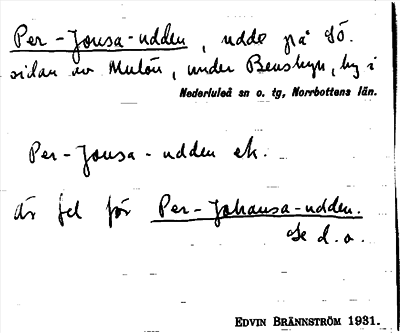 Per-Jonsa-udden, udde på sö.
sidan av Mulön, under Benshyn, by i
Nederluleå sn o. tg, Norrbottens län.
Per-Jonsa-udden ek.
är fel för Per-Johansa-udden.
Se d.o.
EDVIN BRÄNNSTRÖM 1931.